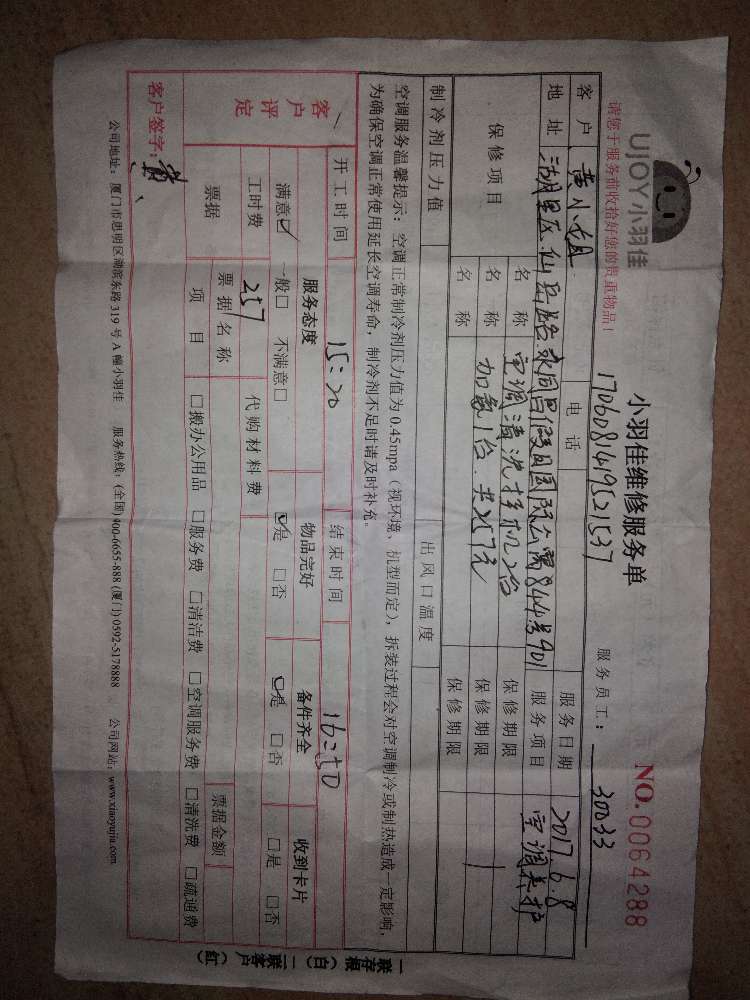 UJOY小羽佳
小羽佳维修服务单
NO.0064288
请您于服务前收拾好您的贵重物品!
1706081419521537
服务员工: 30033
客户 黄小姐 电话 服务日期 2017.6.8
地址 湖里区仙岳路 844号901 服务项目 空调养护
保修项目 名称 空调清洗挂机2台 保修期限
名称 加氨1台 共257元 保修期限
名称 保修期限
制冷剂压力值 出风口温度
空调服务温馨提示:空调正常制冷剂压力值为0.45mpa(视环境、机型而定),拆装过程会对空调制冷或制热造成一定影响,
为确保空调正常使用延长空调寿命,制冷剂不足时请及时补充。
开工时间 15:20 结束时间 16:50
客户评定 服务态度 物品完好 备件齐全 收到卡片
满意☑ 一般□ 不满意□ ☑是 □否 ☑是 □否 □是 □否
工时费 257 代购材料费
票据 票据名称 票据金额
项目 □搬办公用品 □服务费 □清洁费 □空调服务费 □清洗费 □疏通费
客户签字: 黄
公司地址:厦门市思明区湖滨东路319号A幢小羽佳 服务热线:(全国)400-6655-888 (厦门)0592-5178888 公司网站:www.xiaoyujia.com
一联存根(白) 二联客户(红)